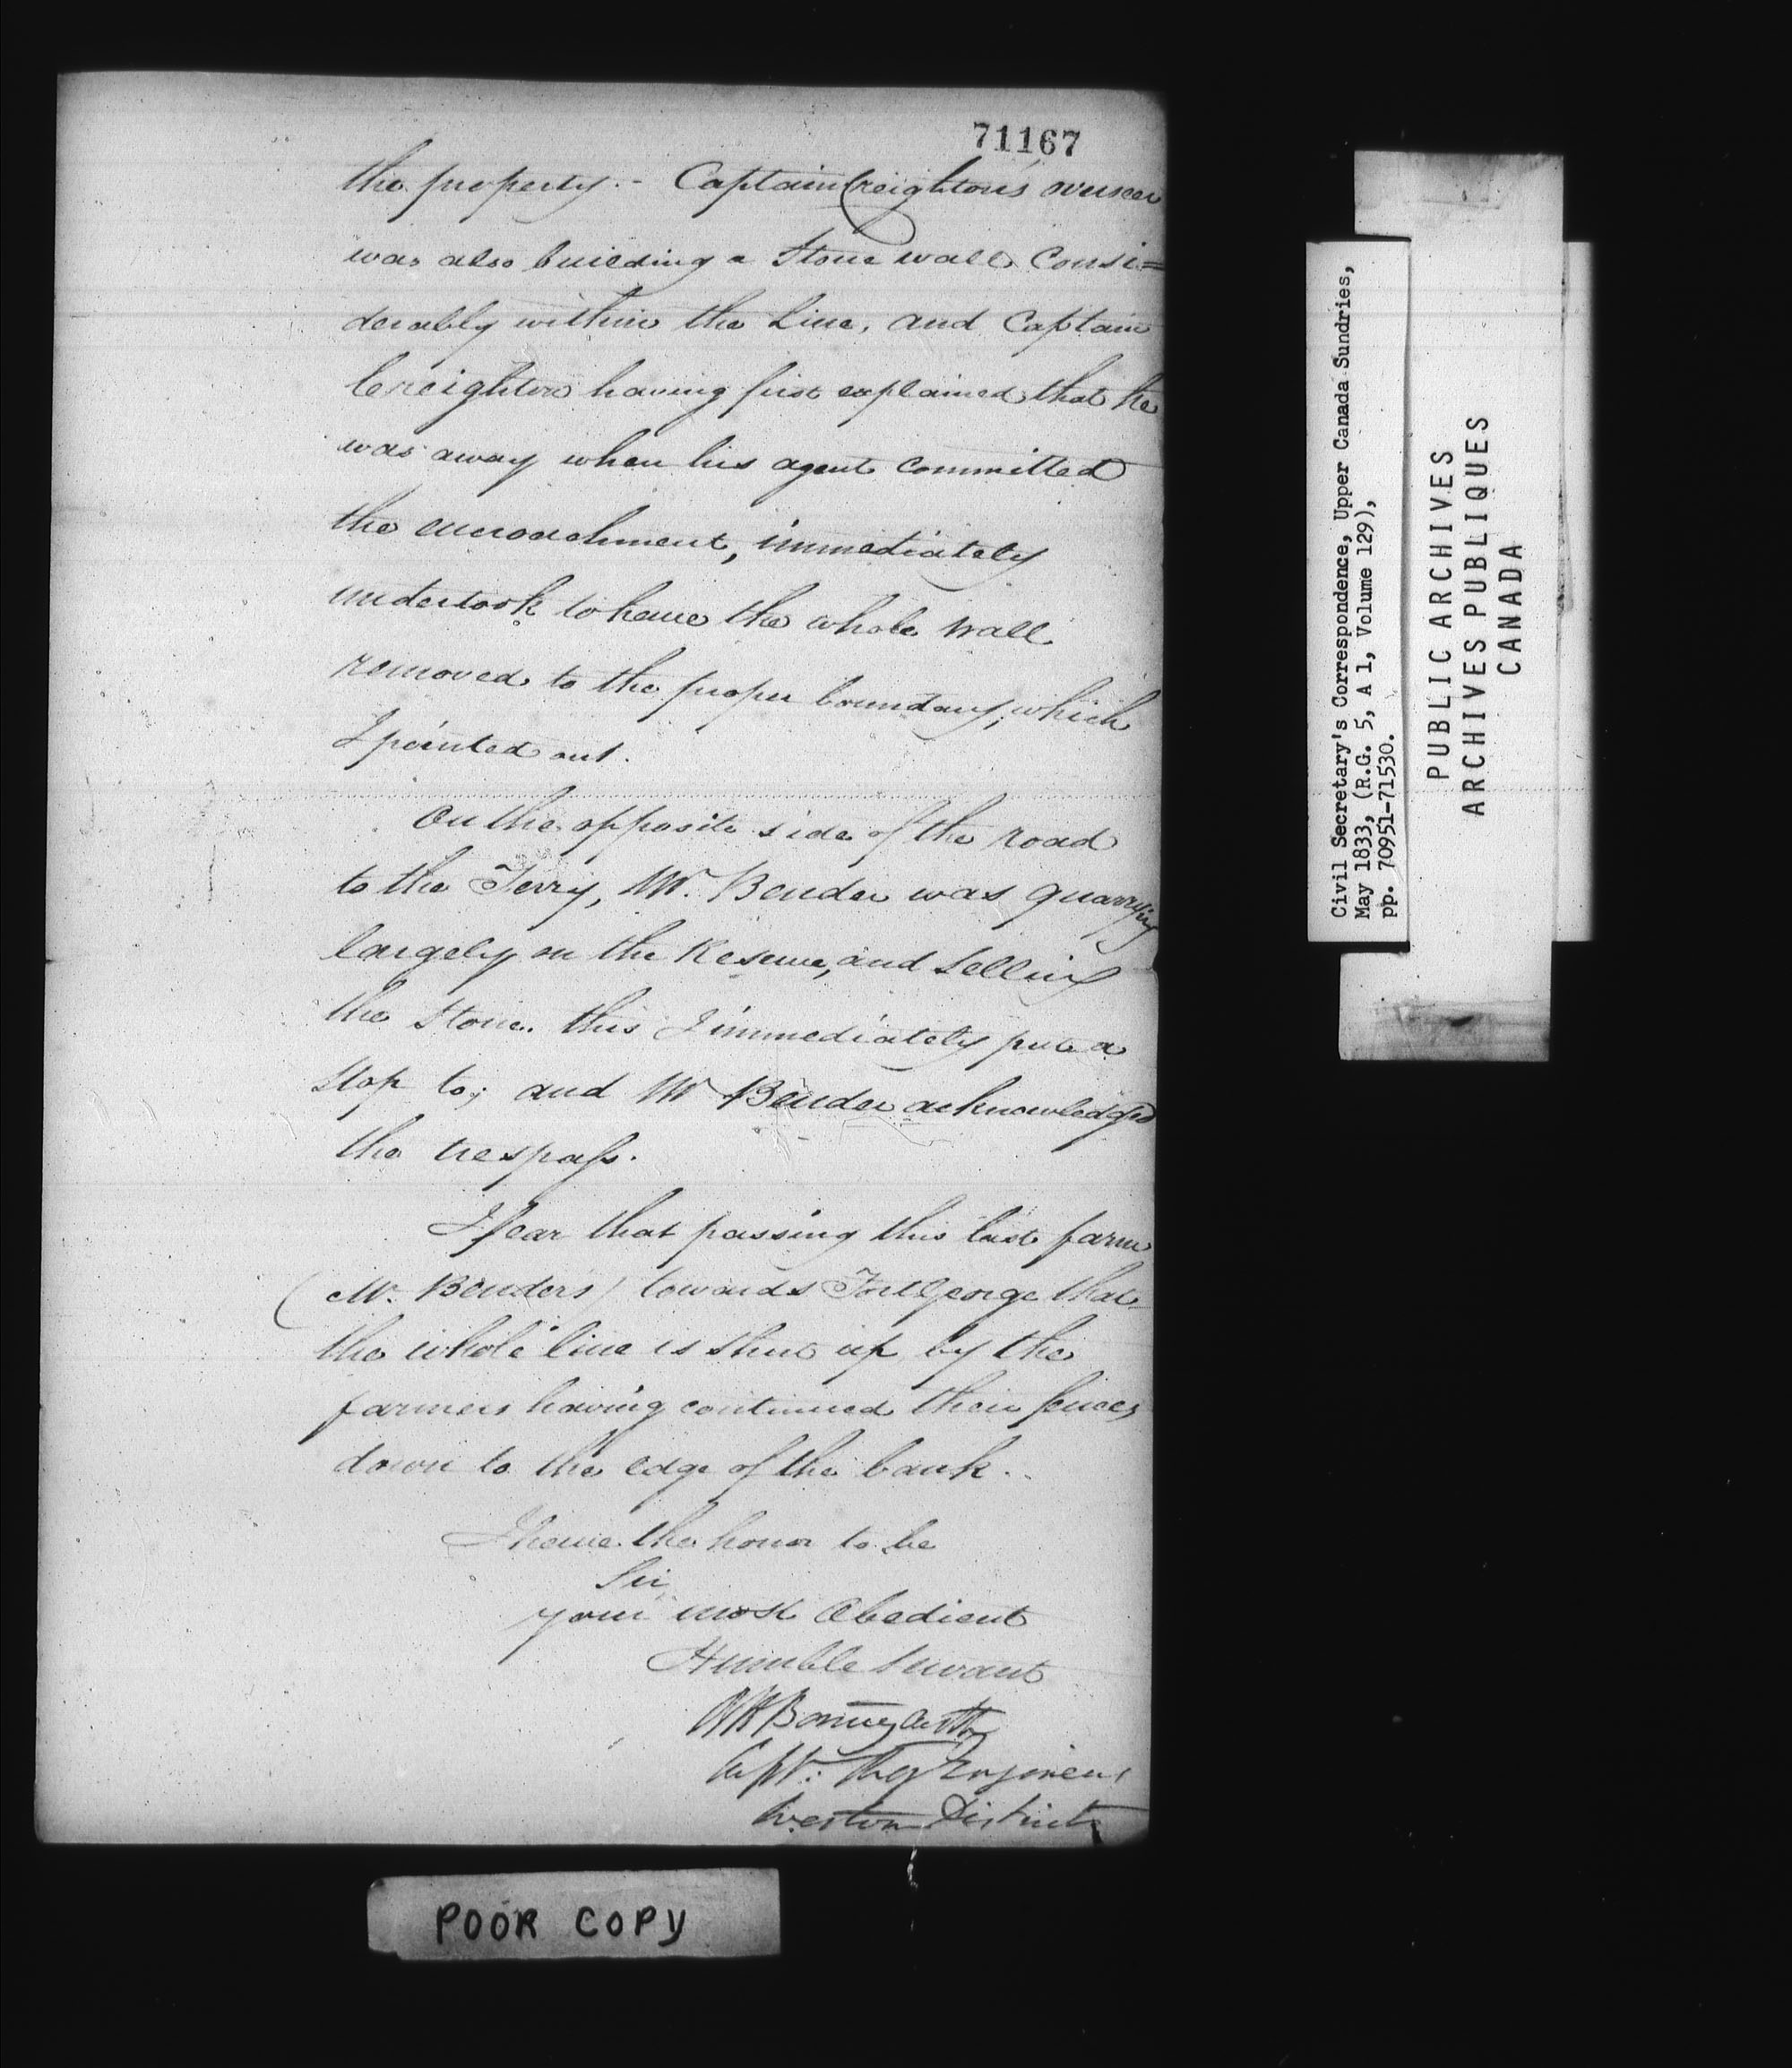 71167
the property. - Captain Creighton's overseer
was also building a Stone wall Consi=
derably within the Line, and Captain
Creighton having first explained that he
was away when his agent committed
the encroachment, immediately
undertook to have the whole wall
removed to the proper boundary, which
I pointed out.
On the opposite side of the road
to the Ferry, Mr. Bender was quarrying
largely on the Reserve, and selling
the Stone. this I immediately put a
stop to; and Mr Bender acknowledged
the trespass.
I fear that passing this last farm
(Mr. Benders) towards Fort George that
the whole line is shut up by the
farmers having continued their fences
down to the edge of the bank.
I have the honor to be
Sir
your most Obedient
Humble Servant
RH Bonnycastle
Captn. Roy Engineers
Western District
POOR COPY
Civil Secretary's Correspondence, Upper Canada Sundries,
May 1833, (R.G. 5, A 1, Volume 129),
pp. 70951-71530.
PUBLIC ARCHIVES
ARCHIVES PUBLIQUES
CANADA